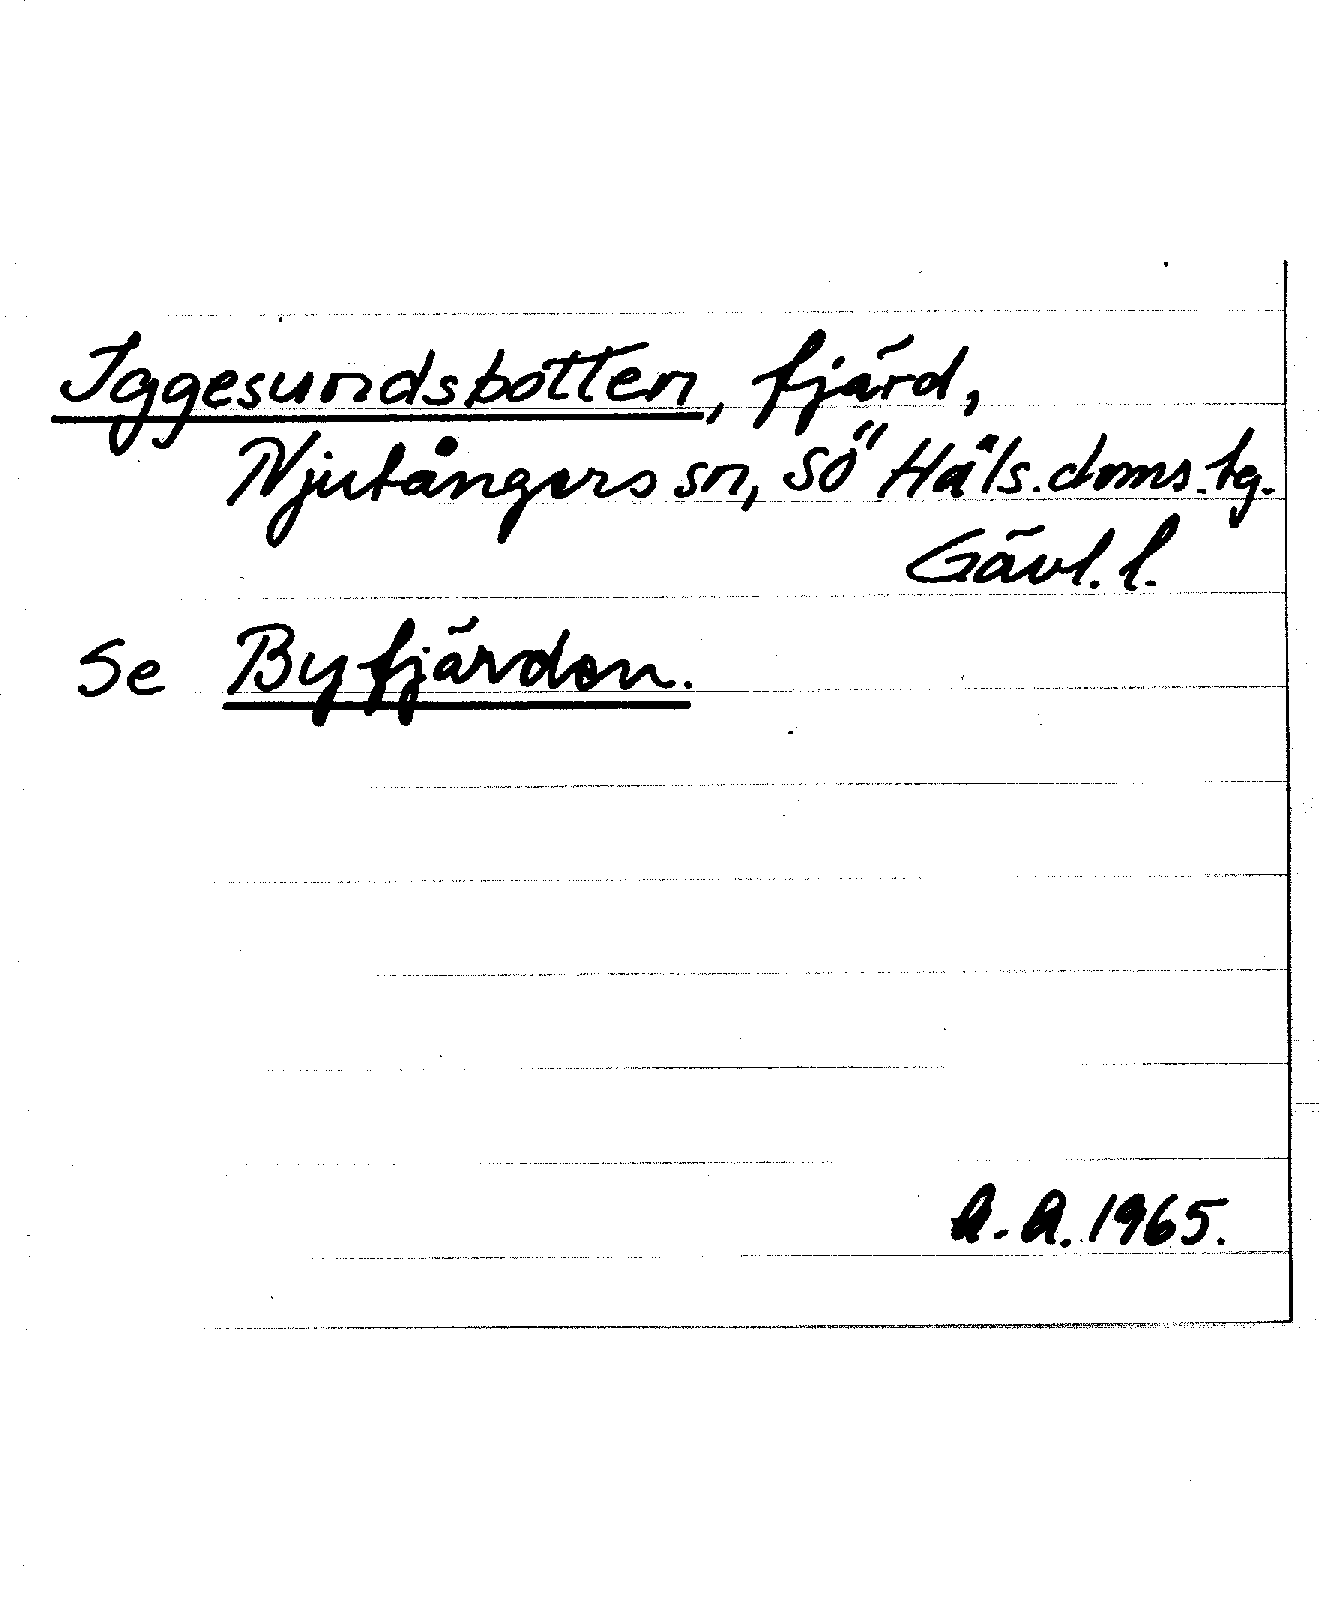 Iggesundsbotten, fjärd,
Njutångers sn, Sö Häls. doms. tg.
Gävl. l.
Se Byfjärden.
A. A. 1965.